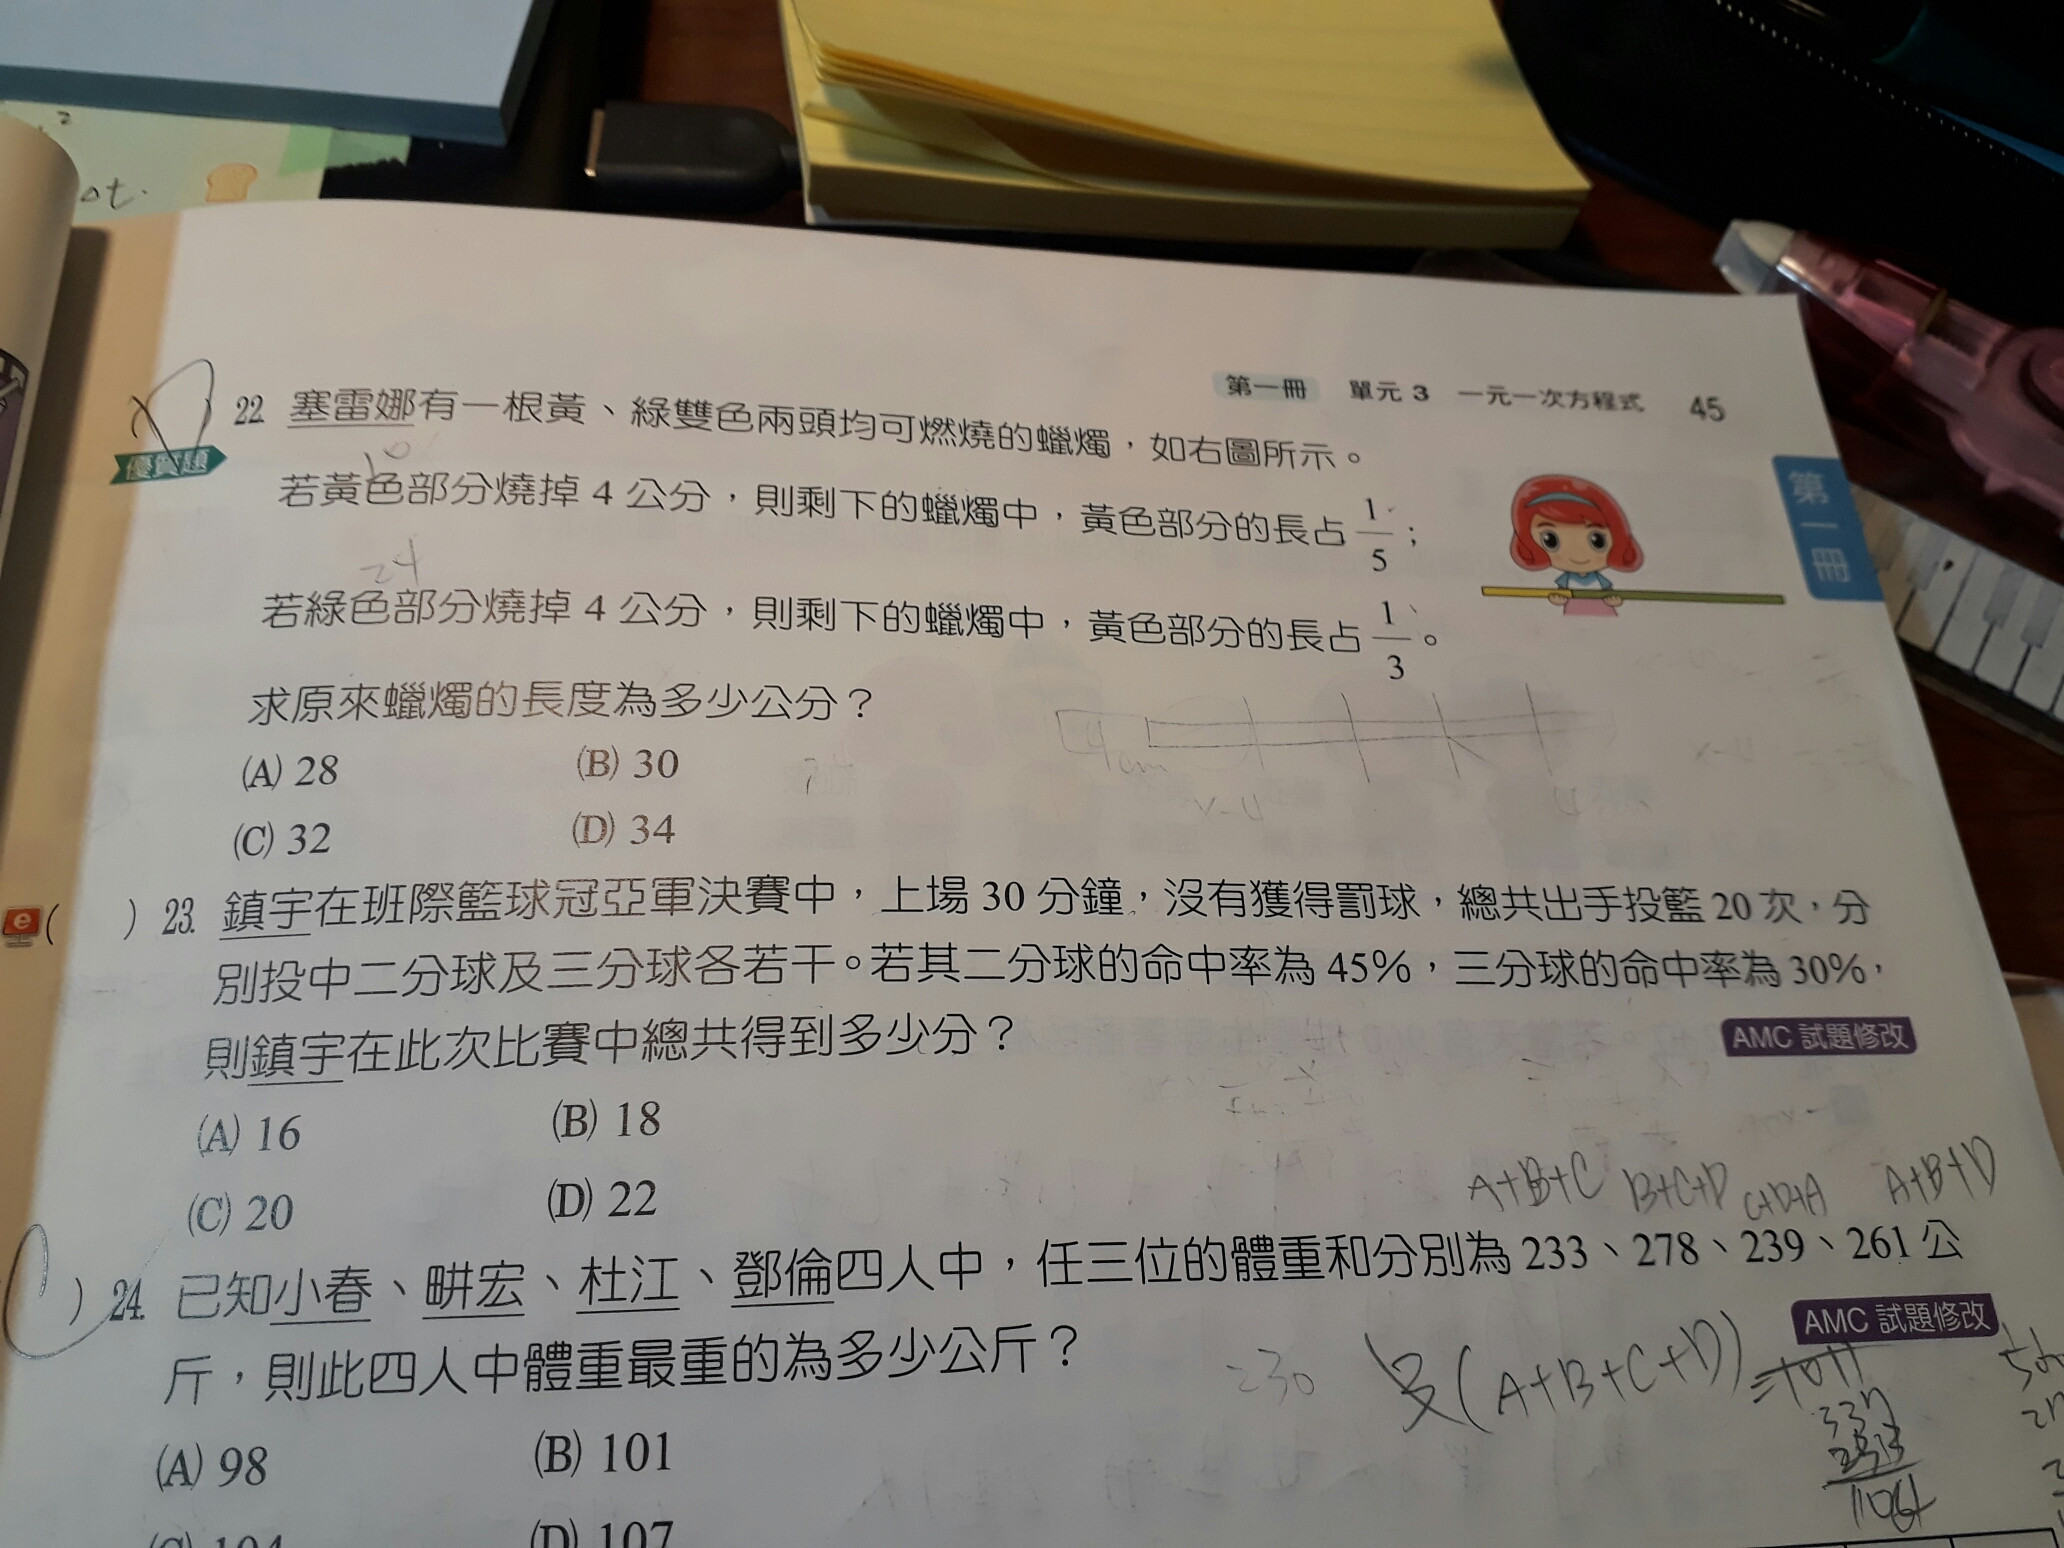 ot.
第一冊 單元 3 一元一次方程式 45
22. 塞雷娜有一根黃、綠雙色兩頭均可燃燒的蠟燭，如右圖所示。
優質題
10
若黃色部分燒掉 4 公分，則剩下的蠟燭中，黃色部分的長占 1/5；
24
若綠色部分燒掉 4 公分，則剩下的蠟燭中，黃色部分的長占 1/3。
求原來蠟燭的長度為多少公分？
(A) 28 (B) 30
(C) 32 (D) 34
第一冊
4cm
e ( ) 23. 鎮宇在班際籃球冠亞軍決賽中，上場 30 分鐘，沒有獲得罰球，總共出手投籃 20 次，分
別投中二分球及三分球各若干。若其二分球的命中率為 45%，三分球的命中率為 30%，
則鎮宇在此次比賽中總共得到多少分？
AMC 試題修改
(A) 16 (B) 18
(C) 20 (D) 22
A+B+C B+C+D C+D+A A+B+D
) 24. 已知小春、畊宏、杜江、鄧倫四人中，任三位的體重和分別為 233、278、239、261 公
斤，則此四人中體重最重的為多少公斤？
AMC 試題修改
230
(A+B+C+D) = 1011
(A) 98 (B) 101
(C) 104 (D) 107